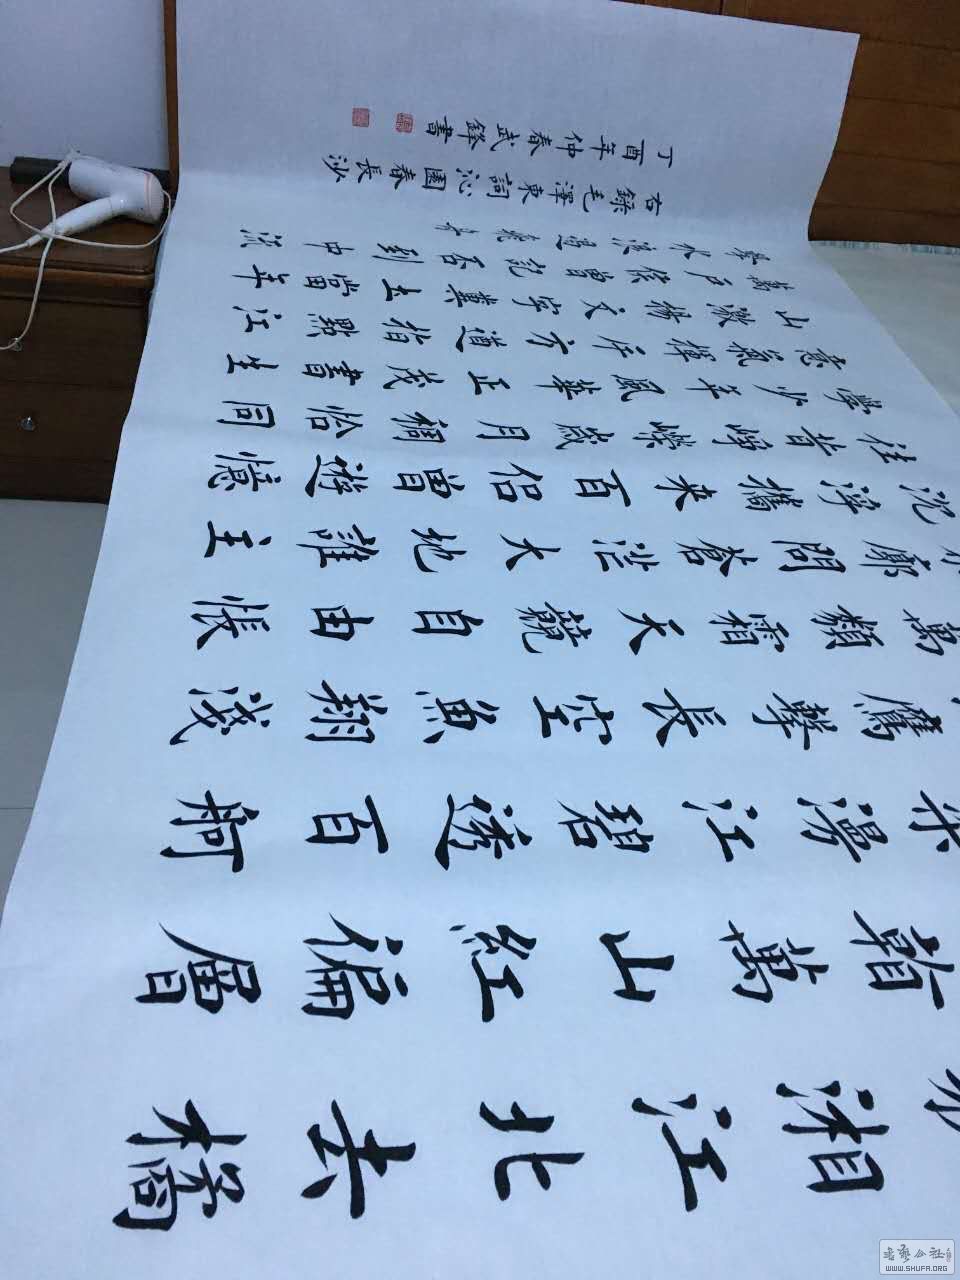 湘江北去橘
萬山紅徧層
漫江碧透百舸
鷹擊長空魚翔淺
萬類霜天競自由悵
廓問蒼茫大地誰主
沉浮攜來百侶曾遊憶
往昔崢嶸歲月稠恰同
學少年風華正茂書生
意氣揮斥方遒指點江
山激揚文字糞土當年
萬戶侯曾記否到中流
擊水浪遏飛舟
右錄毛澤東詞沁園春長沙
丁酉年仲春武鋒書
WWW.SHUFA.ORG